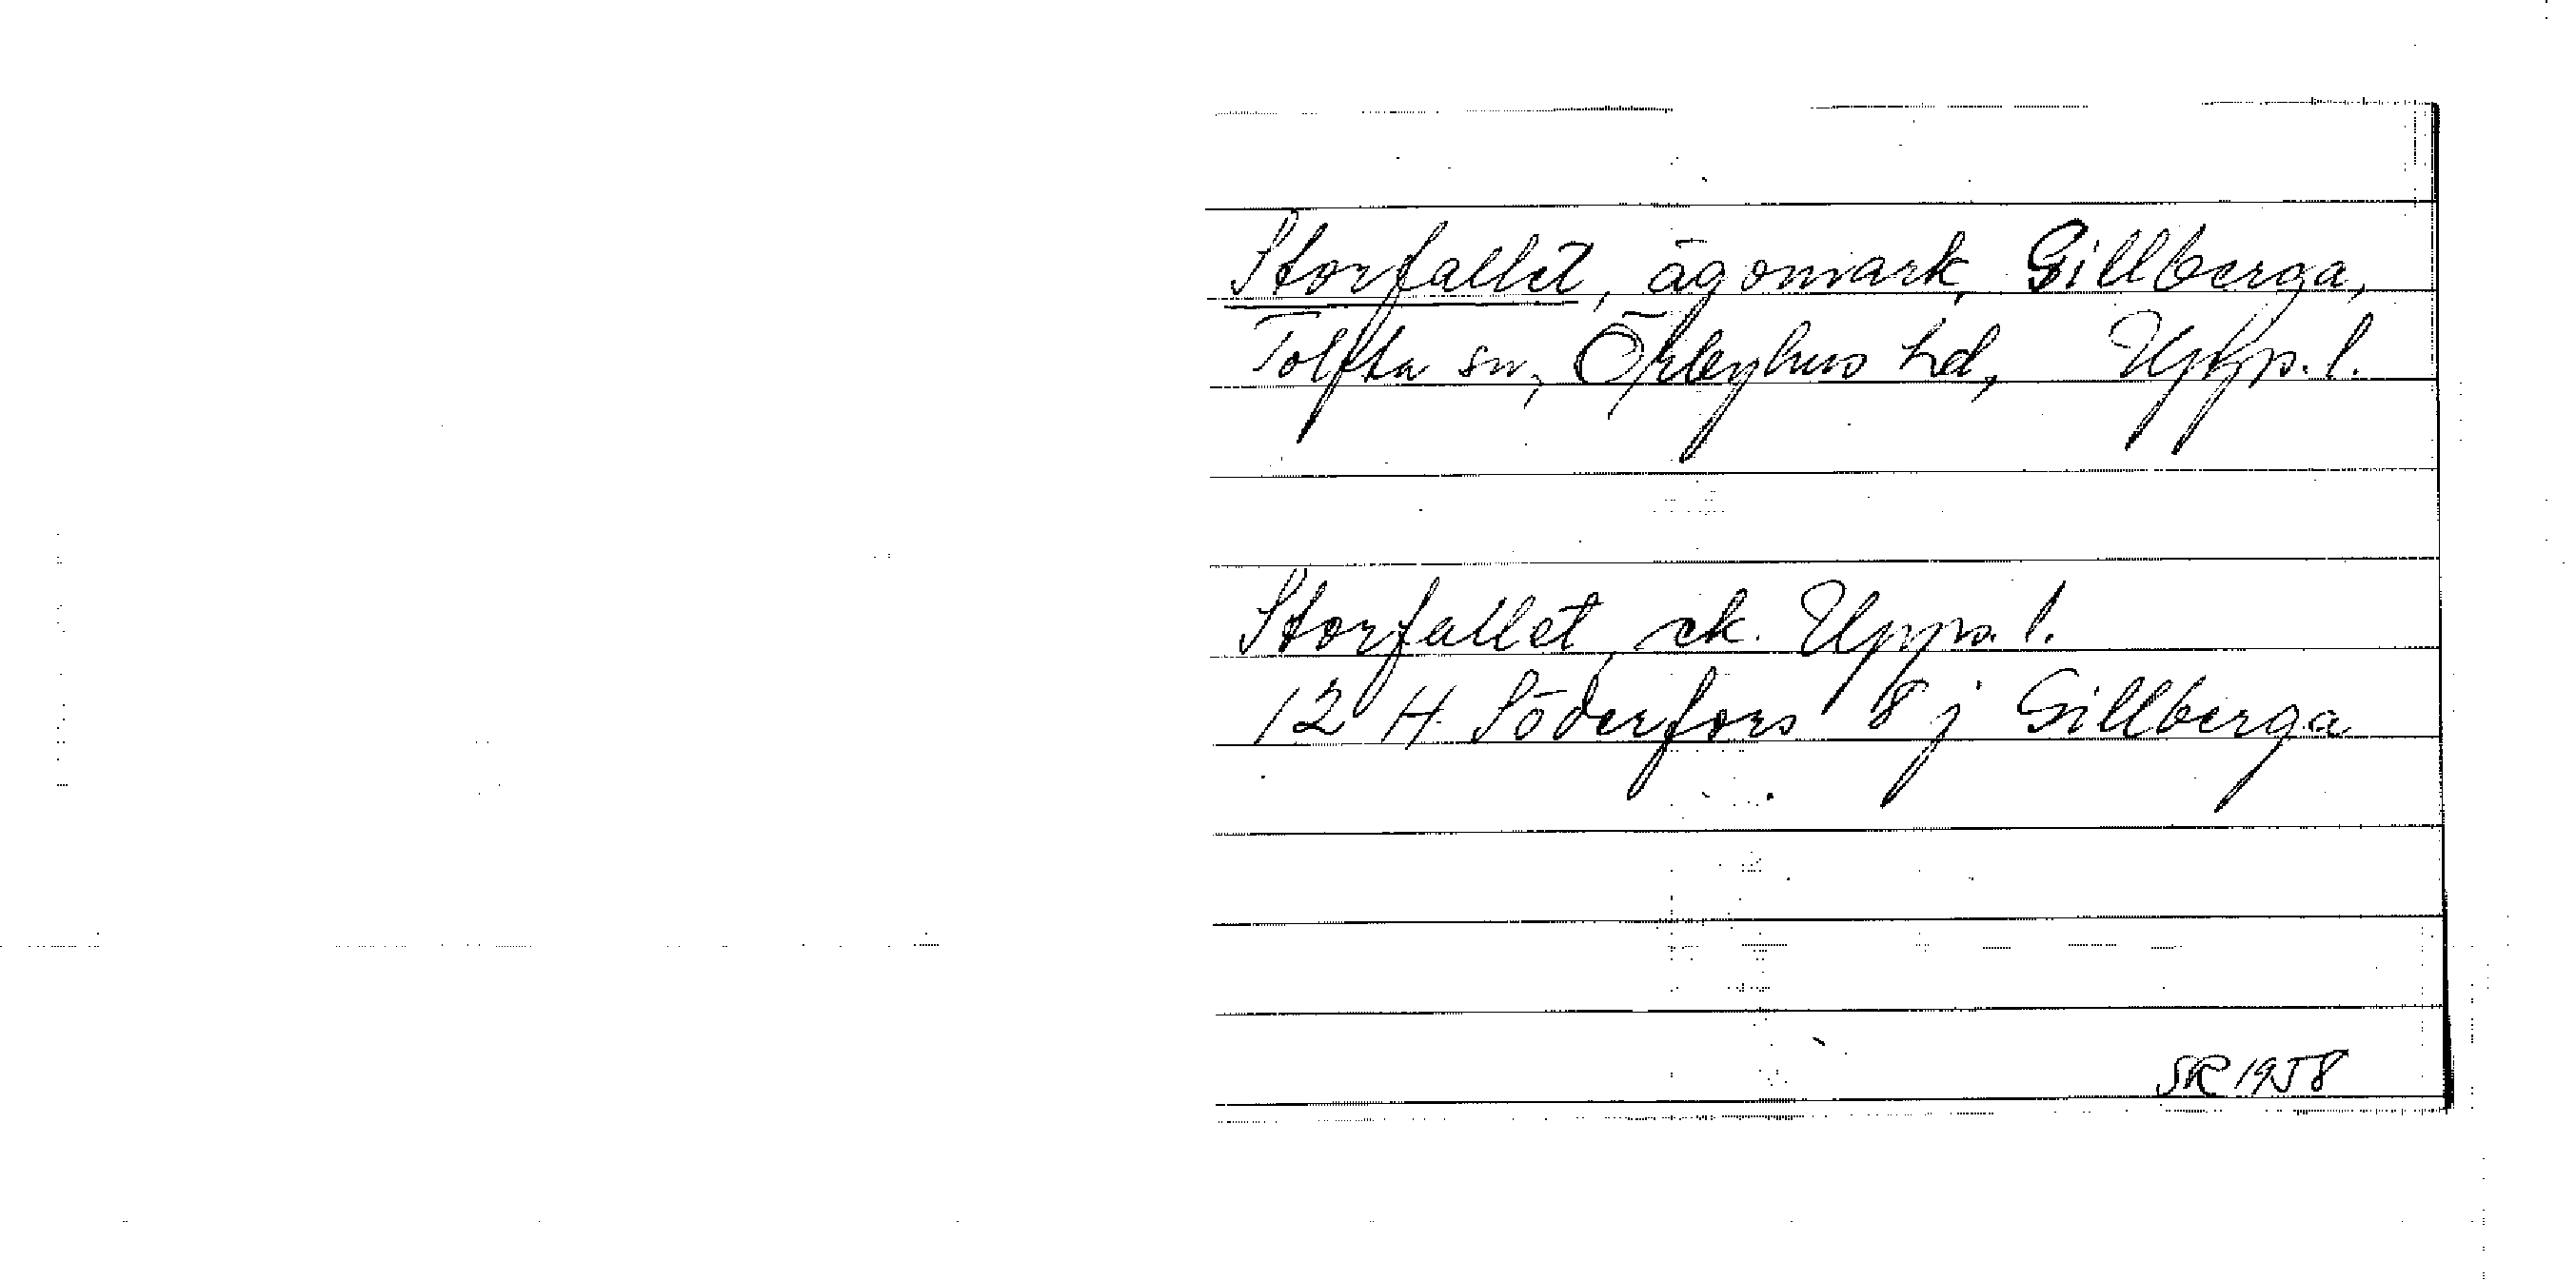 Storfallet, ägomark, Gillberga,
Tolfta sn, Örbyhus hd, Upps. l.
Storfallet, ek. Upps. l.
12 H Söderfors 8 j Gillberga
SR 1958